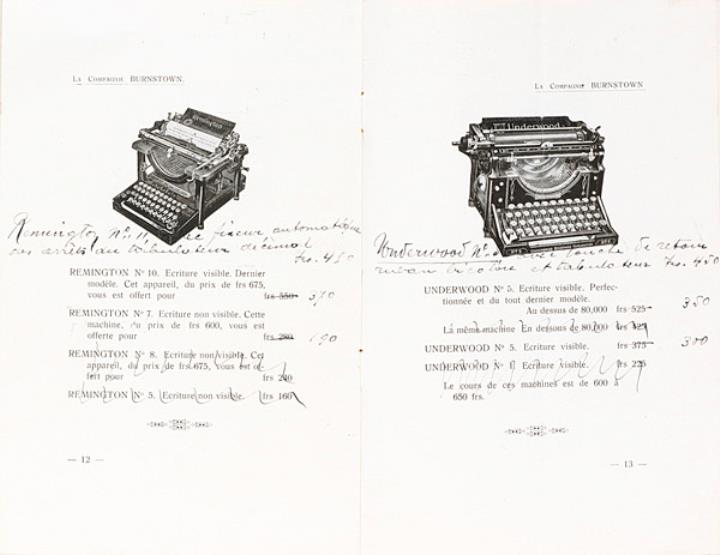 La Compagnie BURNSTOWN.
Remington
Remington No. 11 fixeur automatique
des arrêts au tabulateur décimal
frs. 450
REMINGTON No 10. Ecriture visible. Dernier
modèle. Cet appareil, du prix de frs 675,
vous est offert pour frs 550 370
REMINGTON No 7. Ecriture non visible. Cette
machine, du prix de frs 600, vous est
offerte pour frs 280 190
REMINGTON No 8. Ecriture non visible. Cet
appareil, du prix de frs 675, vous est of-
fert pour frs 240
REMINGTON No 5. Ecriture non visible. frs 160
— 12 —
La Compagnie BURNSTOWN
Underwood
Underwood No. avec touche de retour
ruban bicolore et tabulateur frs. 450
UNDERWOOD No 5. Ecriture visible. Perfec-
tionnée et du tout dernier modèle.
Au dessus de 80,000 frs 525 350
La même machine En dessous de 80,000 frs 425
UNDERWOOD No 5. Ecriture visible. frs 375 300
UNDERWOOD No 1. Ecriture visible. frs 225
Le cours de ces machines est de 600 à
650 frs.
— 13 —